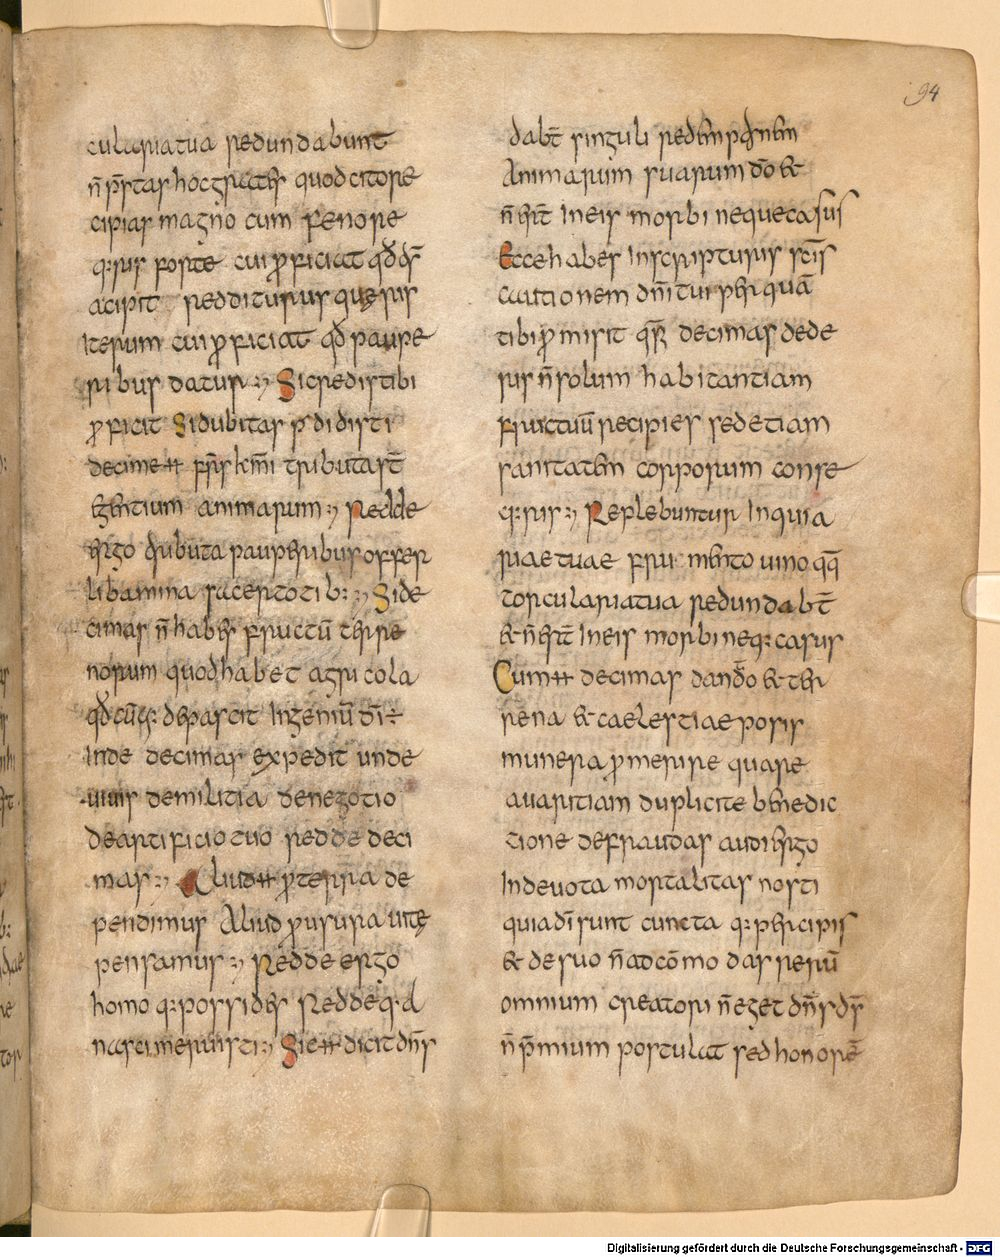 94
cularia tua redundabunt
n̄ p̄stas hoc gratis quod cito re
cipias magno cum fenore
q:ris forte cui proficiat qđ ds̄
acipit redditurus queris
Iterum cui proficiat qđ paupe
ribus datur Si credis tibi
proficit Si dubitas p̄didisti
decime ħ frs̄ km̄i tributa st̄
egentium animarum Redde
ergo tributa pauperibus offer
libamina sacertotib: Si de
cimas n̄ habes fructū terre
norum quod habet agricola
qđcūq: depascit Ingeniū dī ÷
Inde decimas expedit unde
uiuis de militia de negotio
de artificio tuo redde deci
mas Aliud ħ pro terra de
pendimus Aliud pro usura uite
pensamus Redde ergo
homo q: possides Redde q:a
nasci meruisti Sic ħ dicit dn̄s
dabt̄ singuli redemptionem
Animarum suarum dō &
n̄ er̄t In eis morbi neque casus
Ecce habes In scripturis sc̄is
cautionem dn̄i tui per quā
tibi promisit decimas dede
ris n̄ solum habitantiam
fructuū recipies sed etiam
sanitatem corporum conse
q:ris Replebuntur Inquia
riae tuae frumento uino qq̄
torcularia tua redundabt̄
& n̄ er̄t In eis morbi neq: casus
Cum ħ decimas dando & ter
rena & caelestia e posis
munera promerire quare
auaritiam duplicite benedic
tione defraudas audi ergo
Indeuota mortalitas nosti
quia dī sunt cuncta q: percipis
& de suo n̄ adcōmodas rerū
omnium creatori n̄ eget dn̄s ds̄
n̄ p̄mium postulat sed honorē
Digitalisierung gefördert durch die Deutsche Forschungsgemeinschaft - DFG